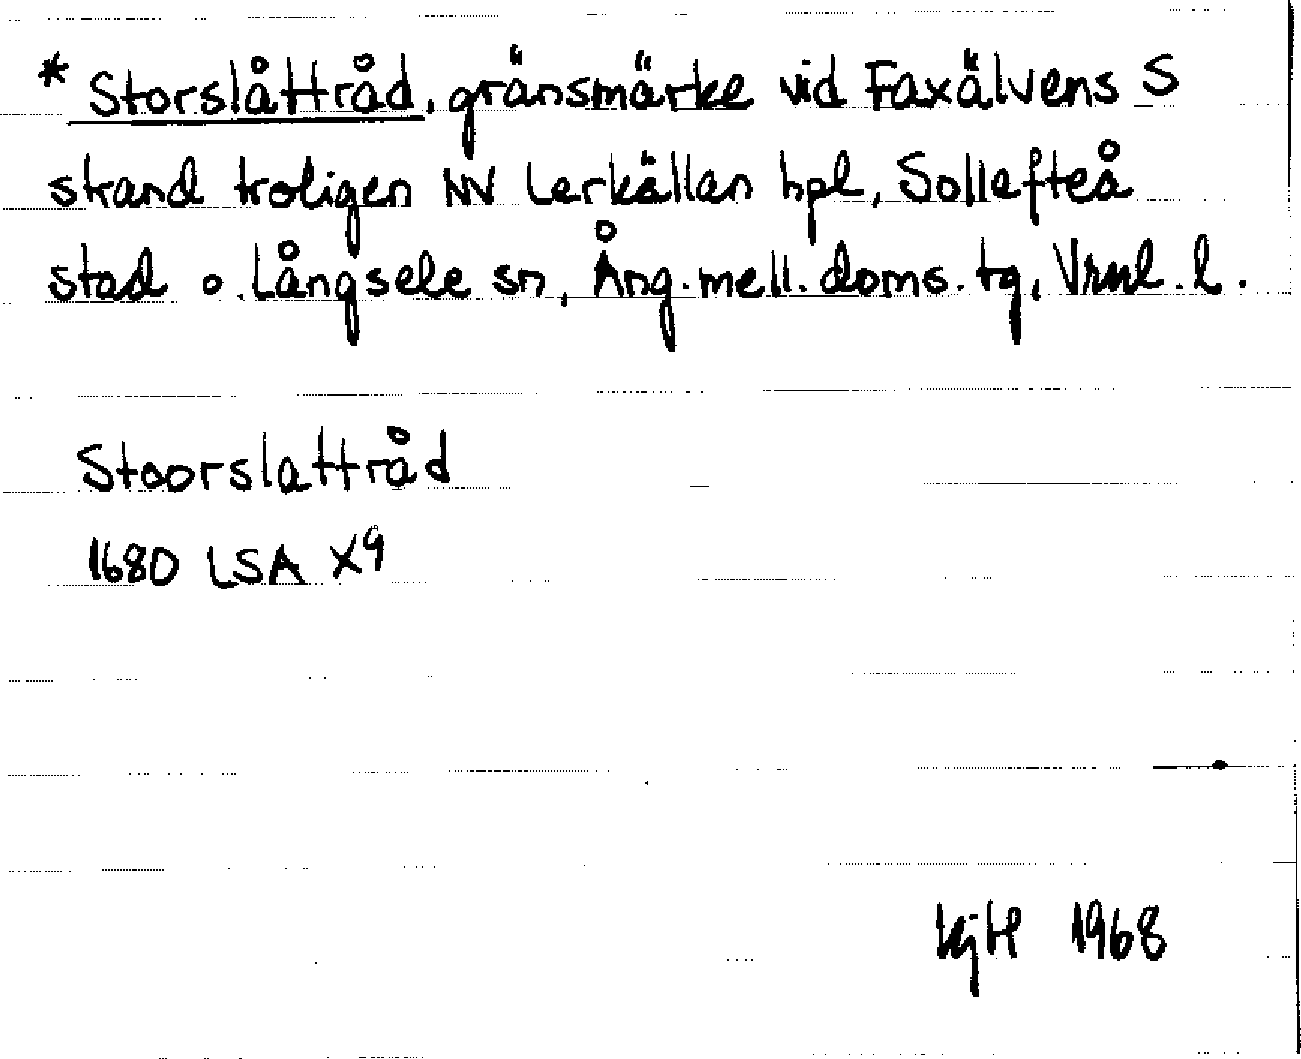 * Storslåttråd, gränsmärke vid Faxälvens S
strand troligen NV Lerkällan hpl, Sollefteå
stad o. Långsele sn, Ång. mell. doms. tg, Vrnl. l.
Stoorslattråd
1680 LSA X9
KjH 1968